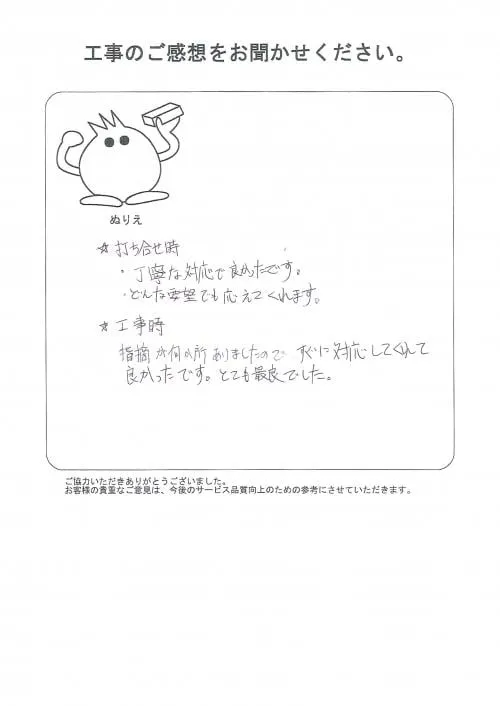 工事のご感想をお聞かせください。
ぬりえ
☆打ち合せ時
・丁寧な対応で良かったです。
・どんな要望でも応えてくれます。
☆工事時
指摘が何か所ありましたので すぐに対応してくれて
良かったです。とても最良でした。
ご協力いただきありがとうございました。
お客様の貴重なご意見は、今後のサービス品質向上のための参考にさせていただきます。